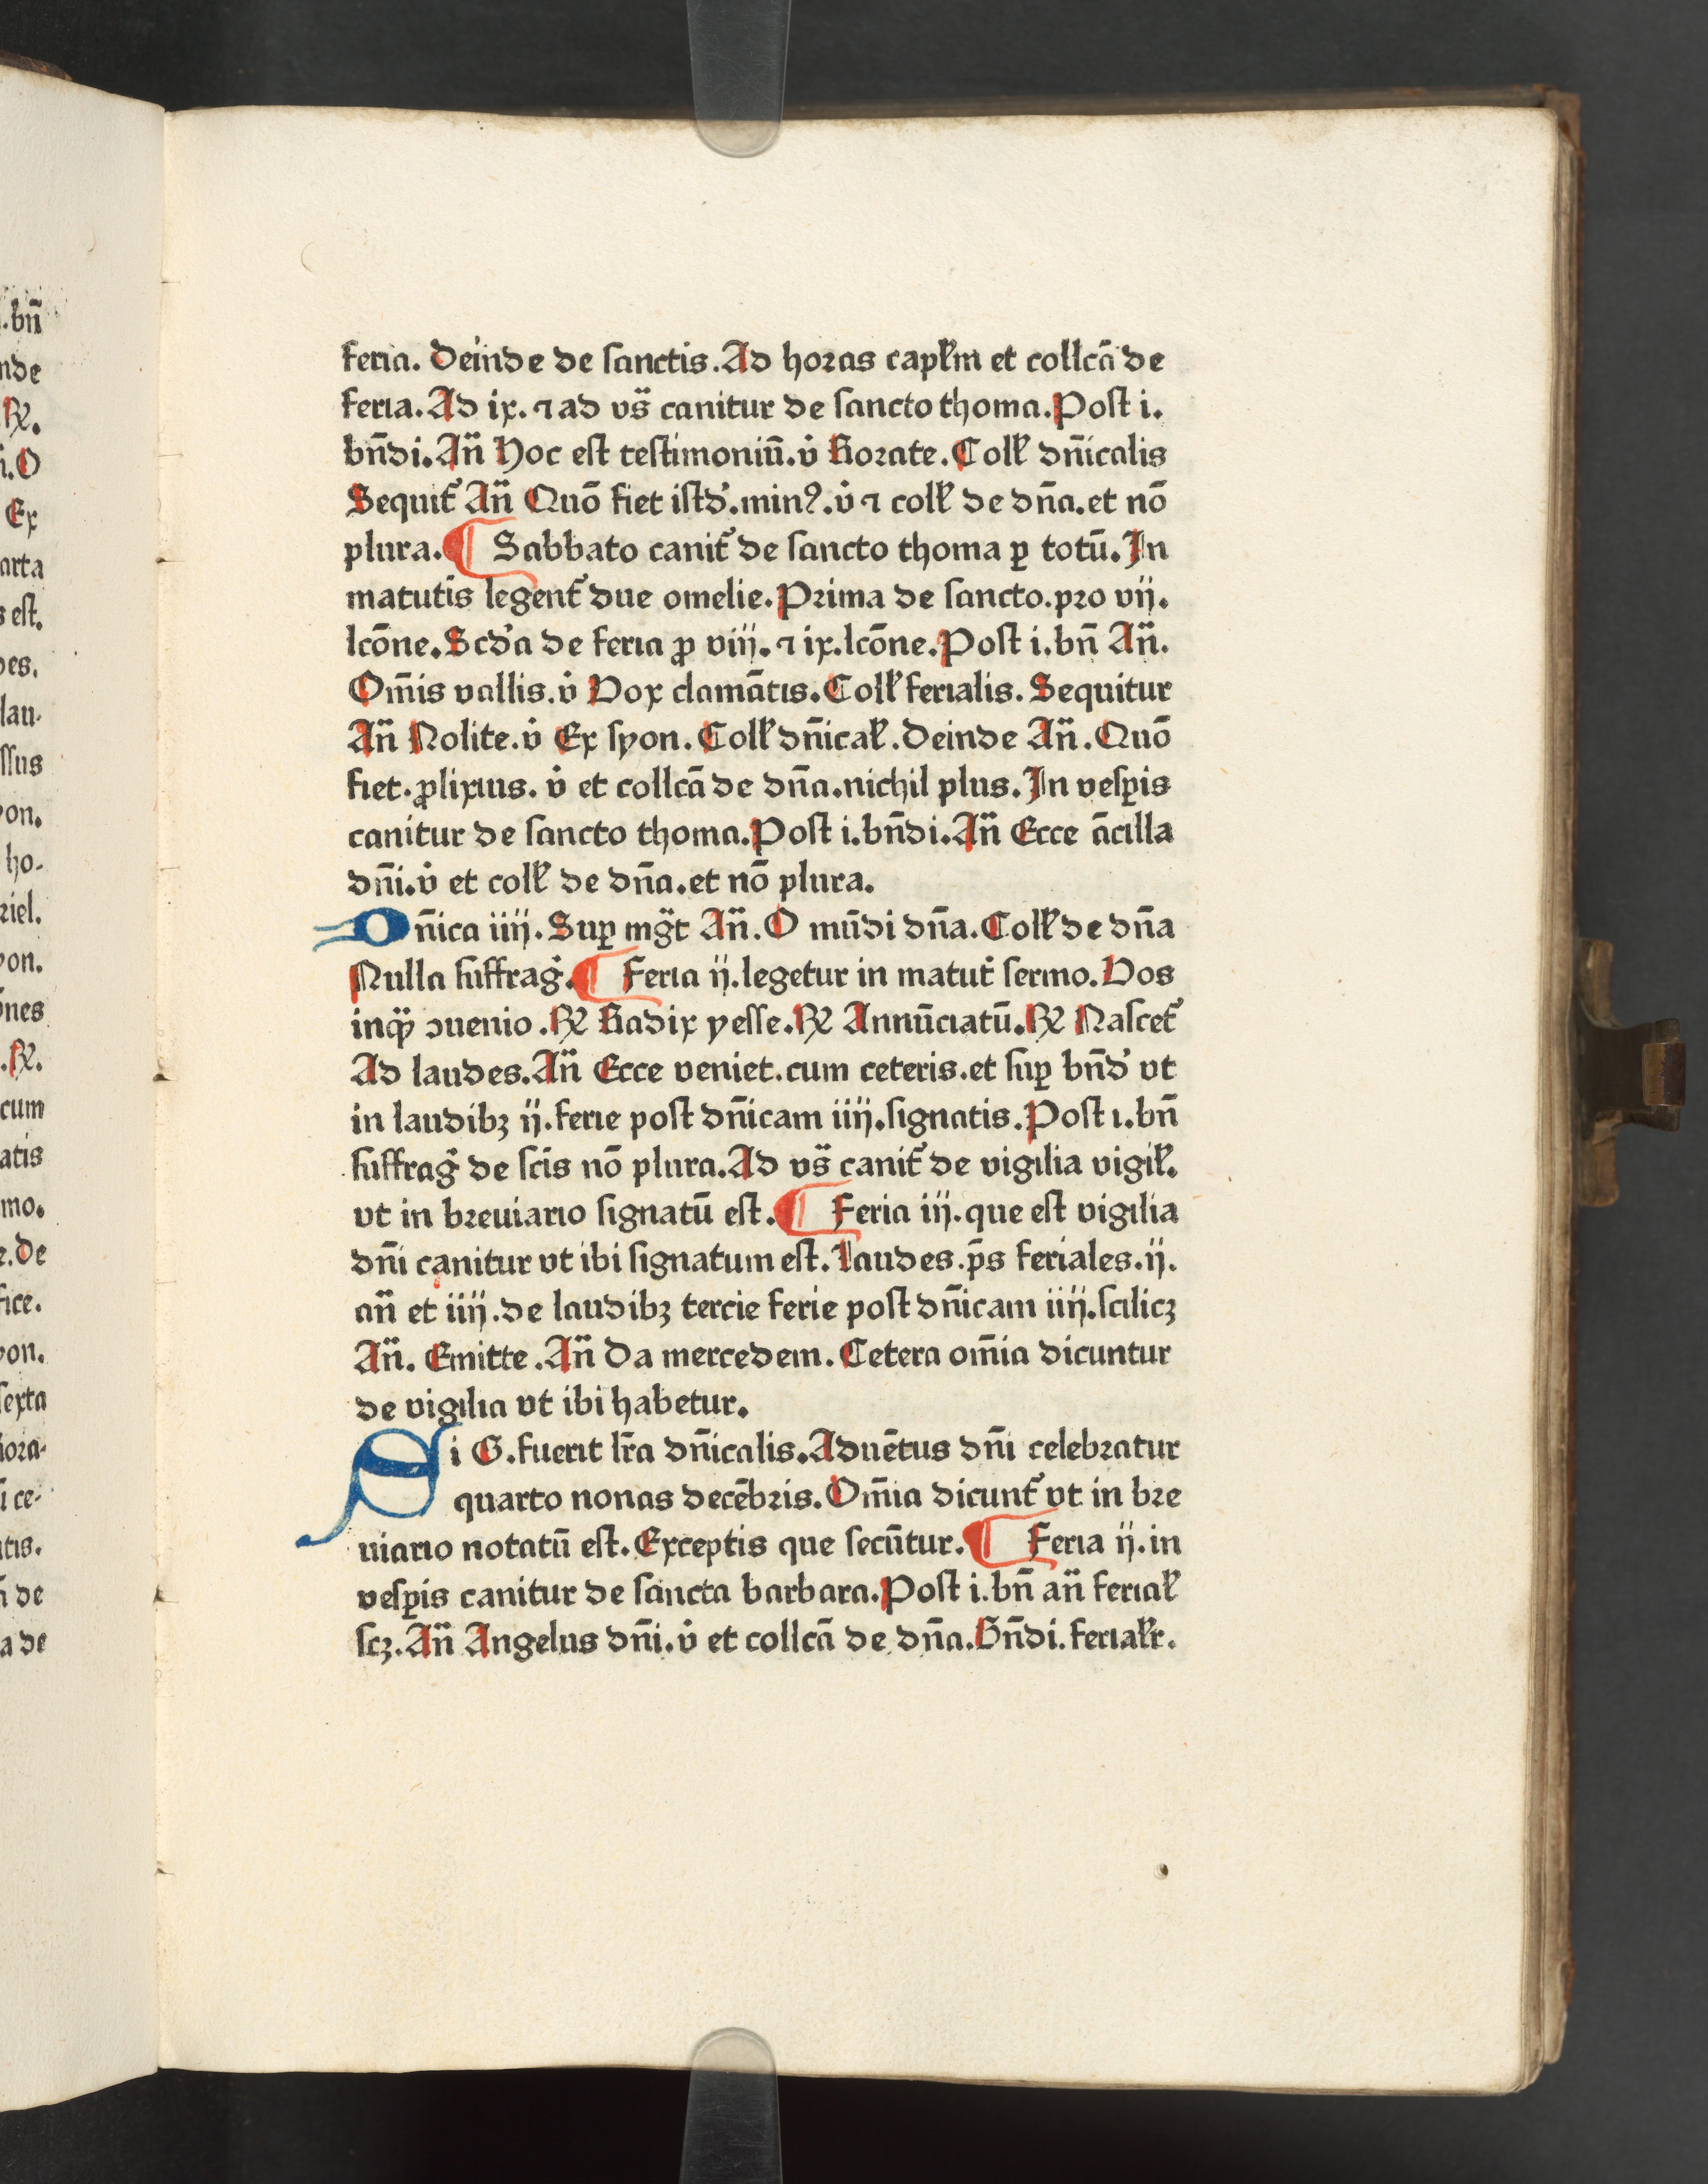 feria. Deinde de sanctis. Ad horas capl̄m et collcā de
feria. Ad ix. ⁊ ad vs̄ canitur de sancto thoma. Post i.
bn̄di. An̄ Hoc est testimoniū. v̇ Rorate. Coll̄ dn̄icalis
Sequit᷑ An̄ Quō fiet istd̛. minꝰ. v̇ ⁊ coll̄ de dn̄a. et nō
plura. ¶ Sabbato canit᷑ de sancto thoma ꝑ totū. In
matutīs legent᷑ due omelie. Prima de sancto. pro vij.
lcōne. Scd̛a de feria ꝓ viij. ⁊ ix. lcōne. Post i. bn̄ An̄.
Om̄is vallis. v̇ Vox clamātis. Coll̄ ferialis. Sequitur
An̄ Nolite. v̇ Ex syon. Coll̄ dn̄ical̄. Deinde An̄. Quō
fiet. ꝓlixius. v̇ et collcā de dn̄a. nichil plus. In vesꝑis
canitur de sancto thoma. Post i. bn̄di. An̄ Ecce ācilla
dn̄i. v̇ et coll̄ de dn̄a. et nō plura.
Dn̄ica iiij. Suꝑ mg̃t An̄. O mūdi dn̄a. Coll̄ de dn̄a
Nulla suffrag̛. ¶ Feria ij. legetur in matut̛ sermo. Vos
inq̃ꝫ ꝯuenio. ℞ Radix yesse. ℞ Annūciatū. ℞ Nascet᷑
Ad laudes. An̄ Ecce veniet. cum ceteris. et suꝑ bn̄d̛ vt
in laudibꝫ ij. ferie post dn̄icam iiij. signatis. Post i. bn̄
suffrag̛ de sc̄is nō plura. Ad vs̄ canit᷑ de vigilia vigil̄.
vt in breuiario signatū est. ¶ Feria iij. que est vigilia
dn̄i canitur vt ibi signatum est. Laudes. p̄s feriales. ij.
an̄ et iiij. de laudibꝫ tercie ferie post dn̄icam iiij. scilicꝫ
An̄. Emitte. An̄ Da mercedem. Cetera om̄ia dicuntur
de vigilia vt ibi habetur.
Si G. fuerit lr̄a dn̄icalis. Aduētus dn̄i celebratur
quarto nonas decēbris. Om̄ia dicunt᷑ vt in bre
uiario notatū est. Exceptis que secūtur. ¶ Feria ij. in
vesꝑis canitur de sancta barbara. Post i. bn̄ an̄ ferial̄
scꝫ. An̄ Angelus dn̄i. v̇ et collcā de dn̄a. Bn̄di. ferial̄r.